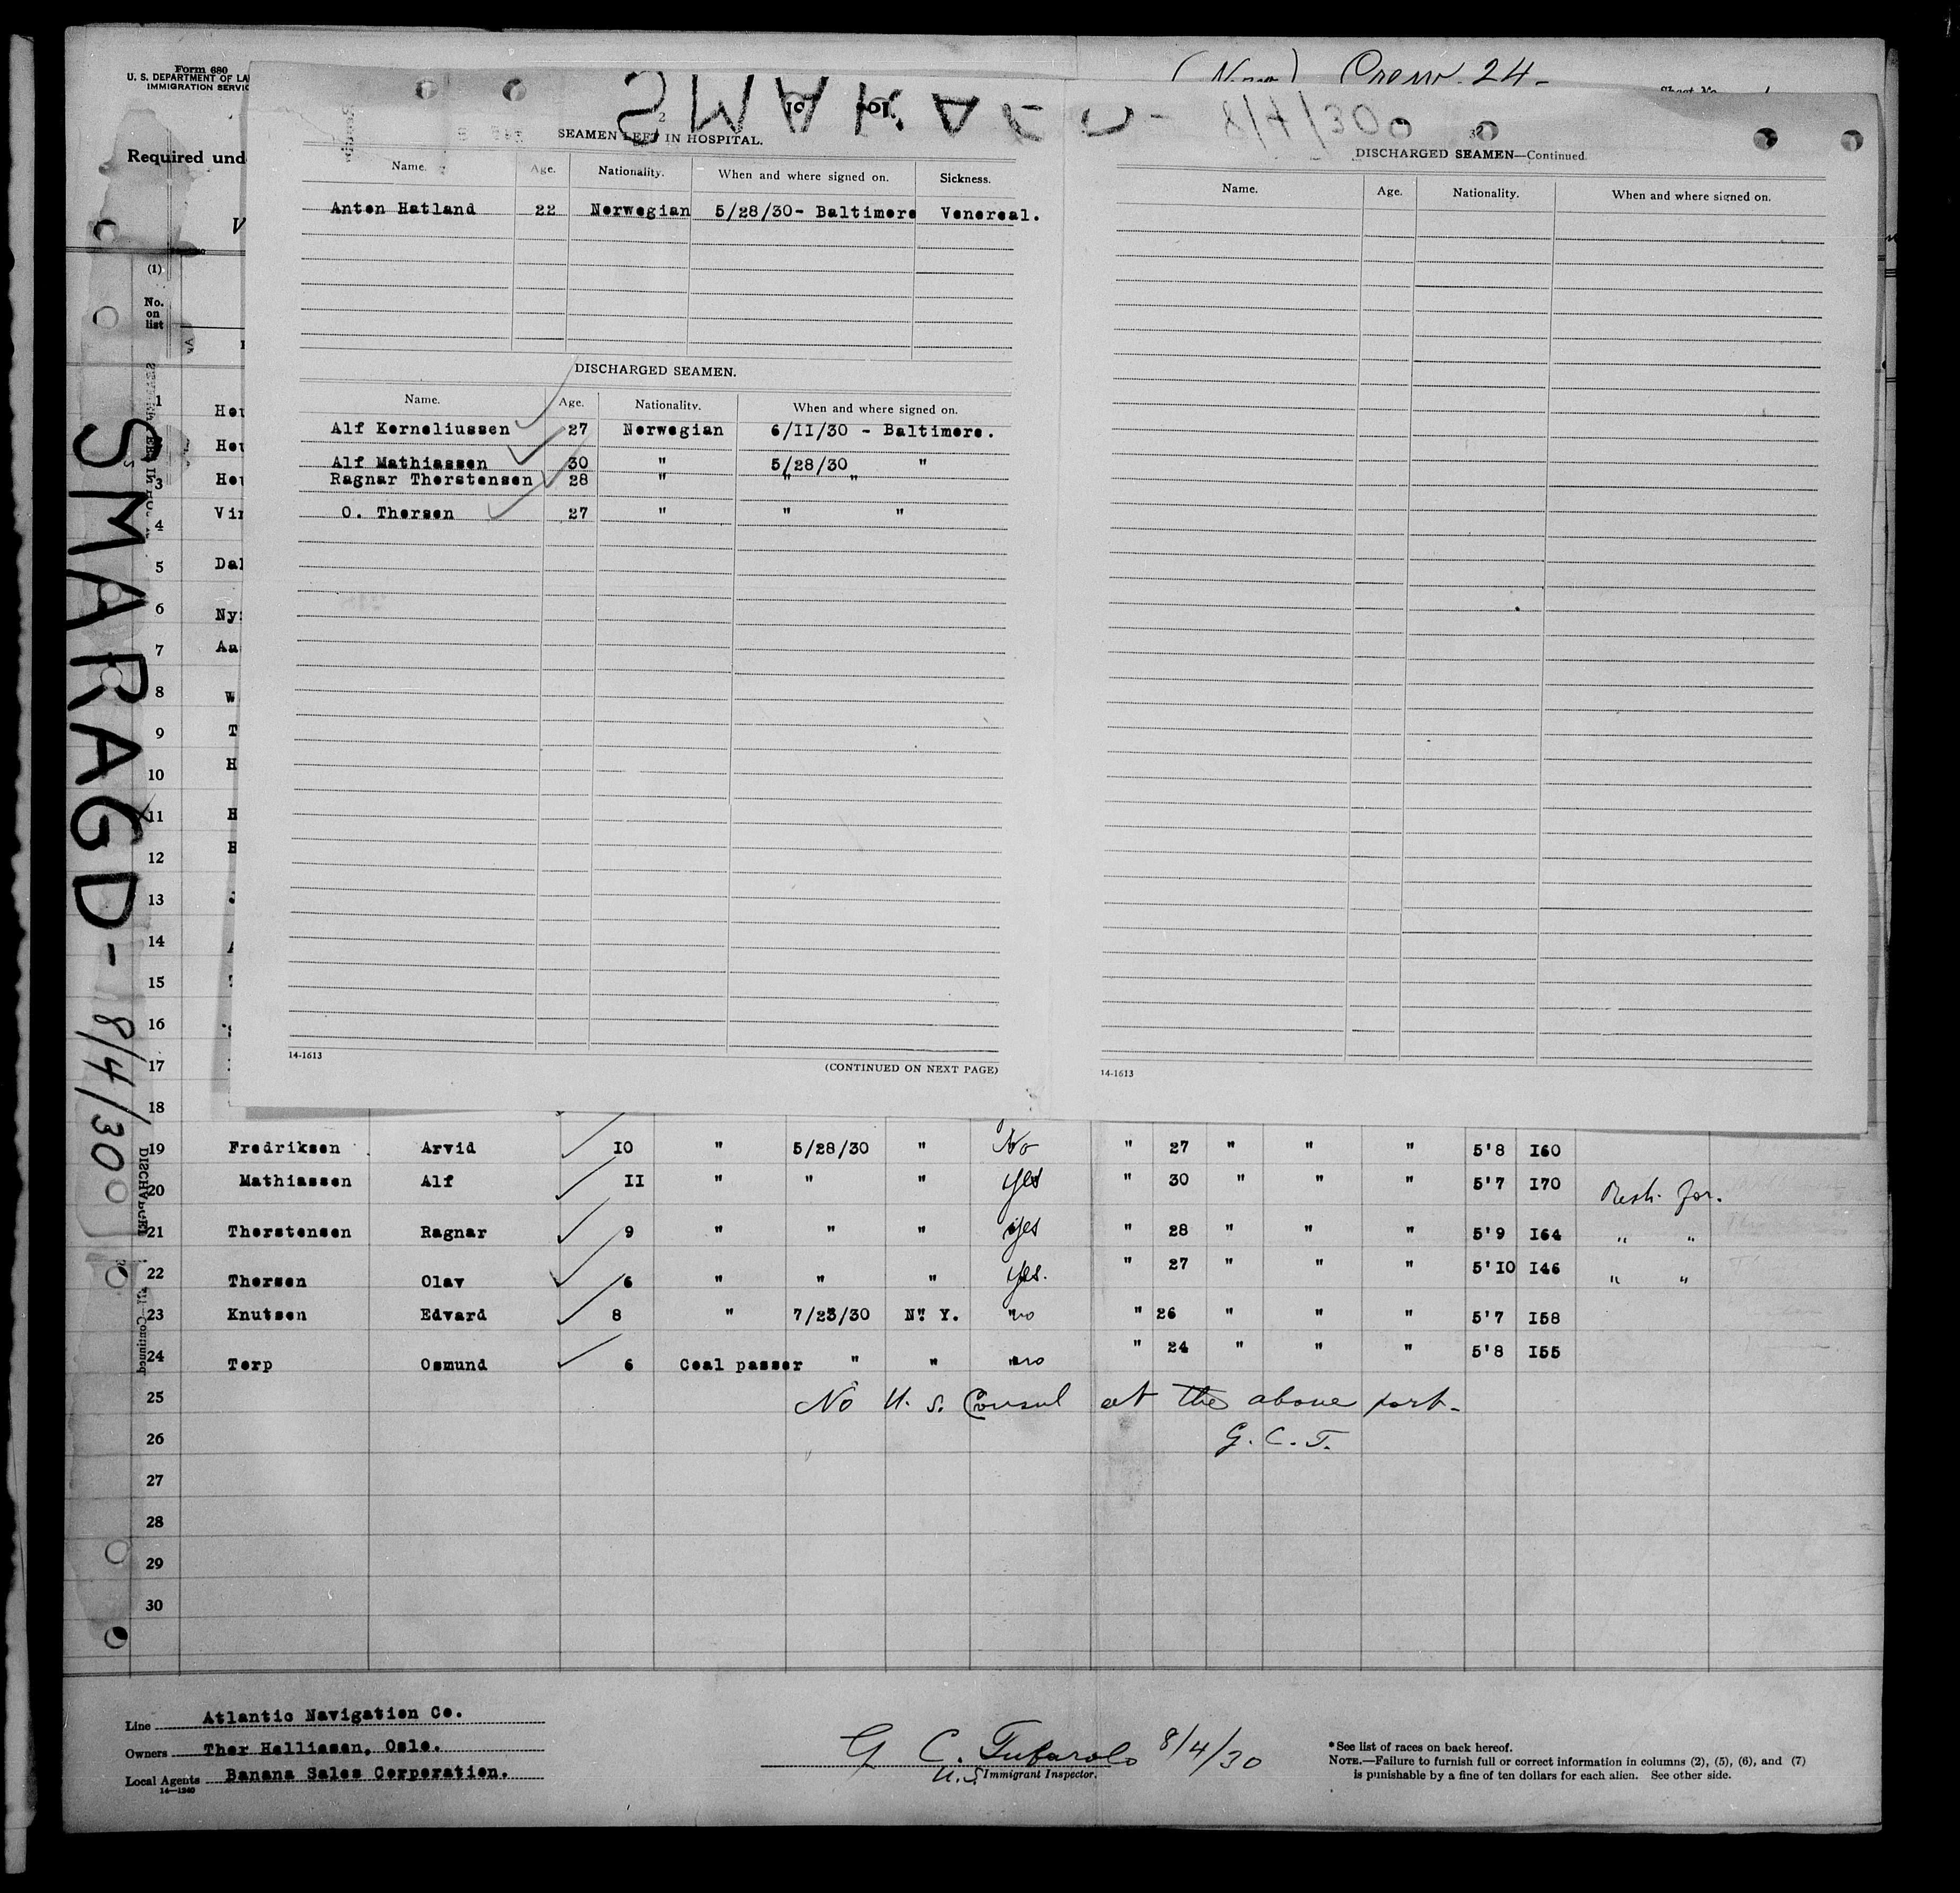 Form 680
U. S. DEPARTMENT OF LA
IMMIGRATION SERVIC
Crew 24-
Sheet No.
Required und
SMARAGD- 8/4/30
2
SEAMEN LEFT IN HOSPITAL.
Name. Age. Nationality. When and where signed on. Sickness.
Anton Hatland 22 Norwegian 5/28/30- Baltimore Venereal.
DISCHARGED SEAMEN.
Name. Age. Nationality. When and where signed on.
Alf Korneliussen 27 Norwegian 6/II/30 - Baltimore.
Alf Mathiassen 30 " 5/28/30 "
Ragnar Thorstensen 28 " " "
O. Thorsen 27 " " "
14-1613
(CONTINUED ON NEXT PAGE)
3
DISCHARGED SEAMEN—Continued
Name. Age. Nationality. When and where signed on.
14-1613
(1)
No. on list
1 Hou
Hou
3 Hou
4 Vir
5 Dal
6 Ny
7 Aa
8 W
9 T
10 H
11 H
12 H
13
14
15
16
17
18
19 Fredriksen Arvid 10 " 5/28/30 " No " 27 " " " 5'8 I60
20 Mathiassen Alf II " " " yes " 30 " " " 5'7 I70
21 Thorstensen Ragnar 9 " " " yes " 28 " " " 5'9 I64 " "
22 Thorsen Olav 6 " " " yes. " 27 " " " 5'10 I46 " "
23 Knutsen Edvard 8 " 7/23/30 N. Y. no " 26 " " " 5'7 I58
24 Torp Osmund 6 Coal passer " " no " 24 " " " 5'8 I55
25 No U. S. Consul at the above port-
26 G. C. T.
27
28
29
30
SMARAGD- 8/4/30
Line Atlantic Navigation Co.
Owners Thor Halliesen, Oslo.
Local Agents Banana Sales Corporation.
14-1240
G C. Tufarolo 8/4/30
U.S. Immigrant Inspector.
*See list of races on back hereof.
NOTE.—Failure to furnish full or correct information in columns (2), (5), (6), and (7)
is punishable by a fine of ten dollars for each alien. See other side.